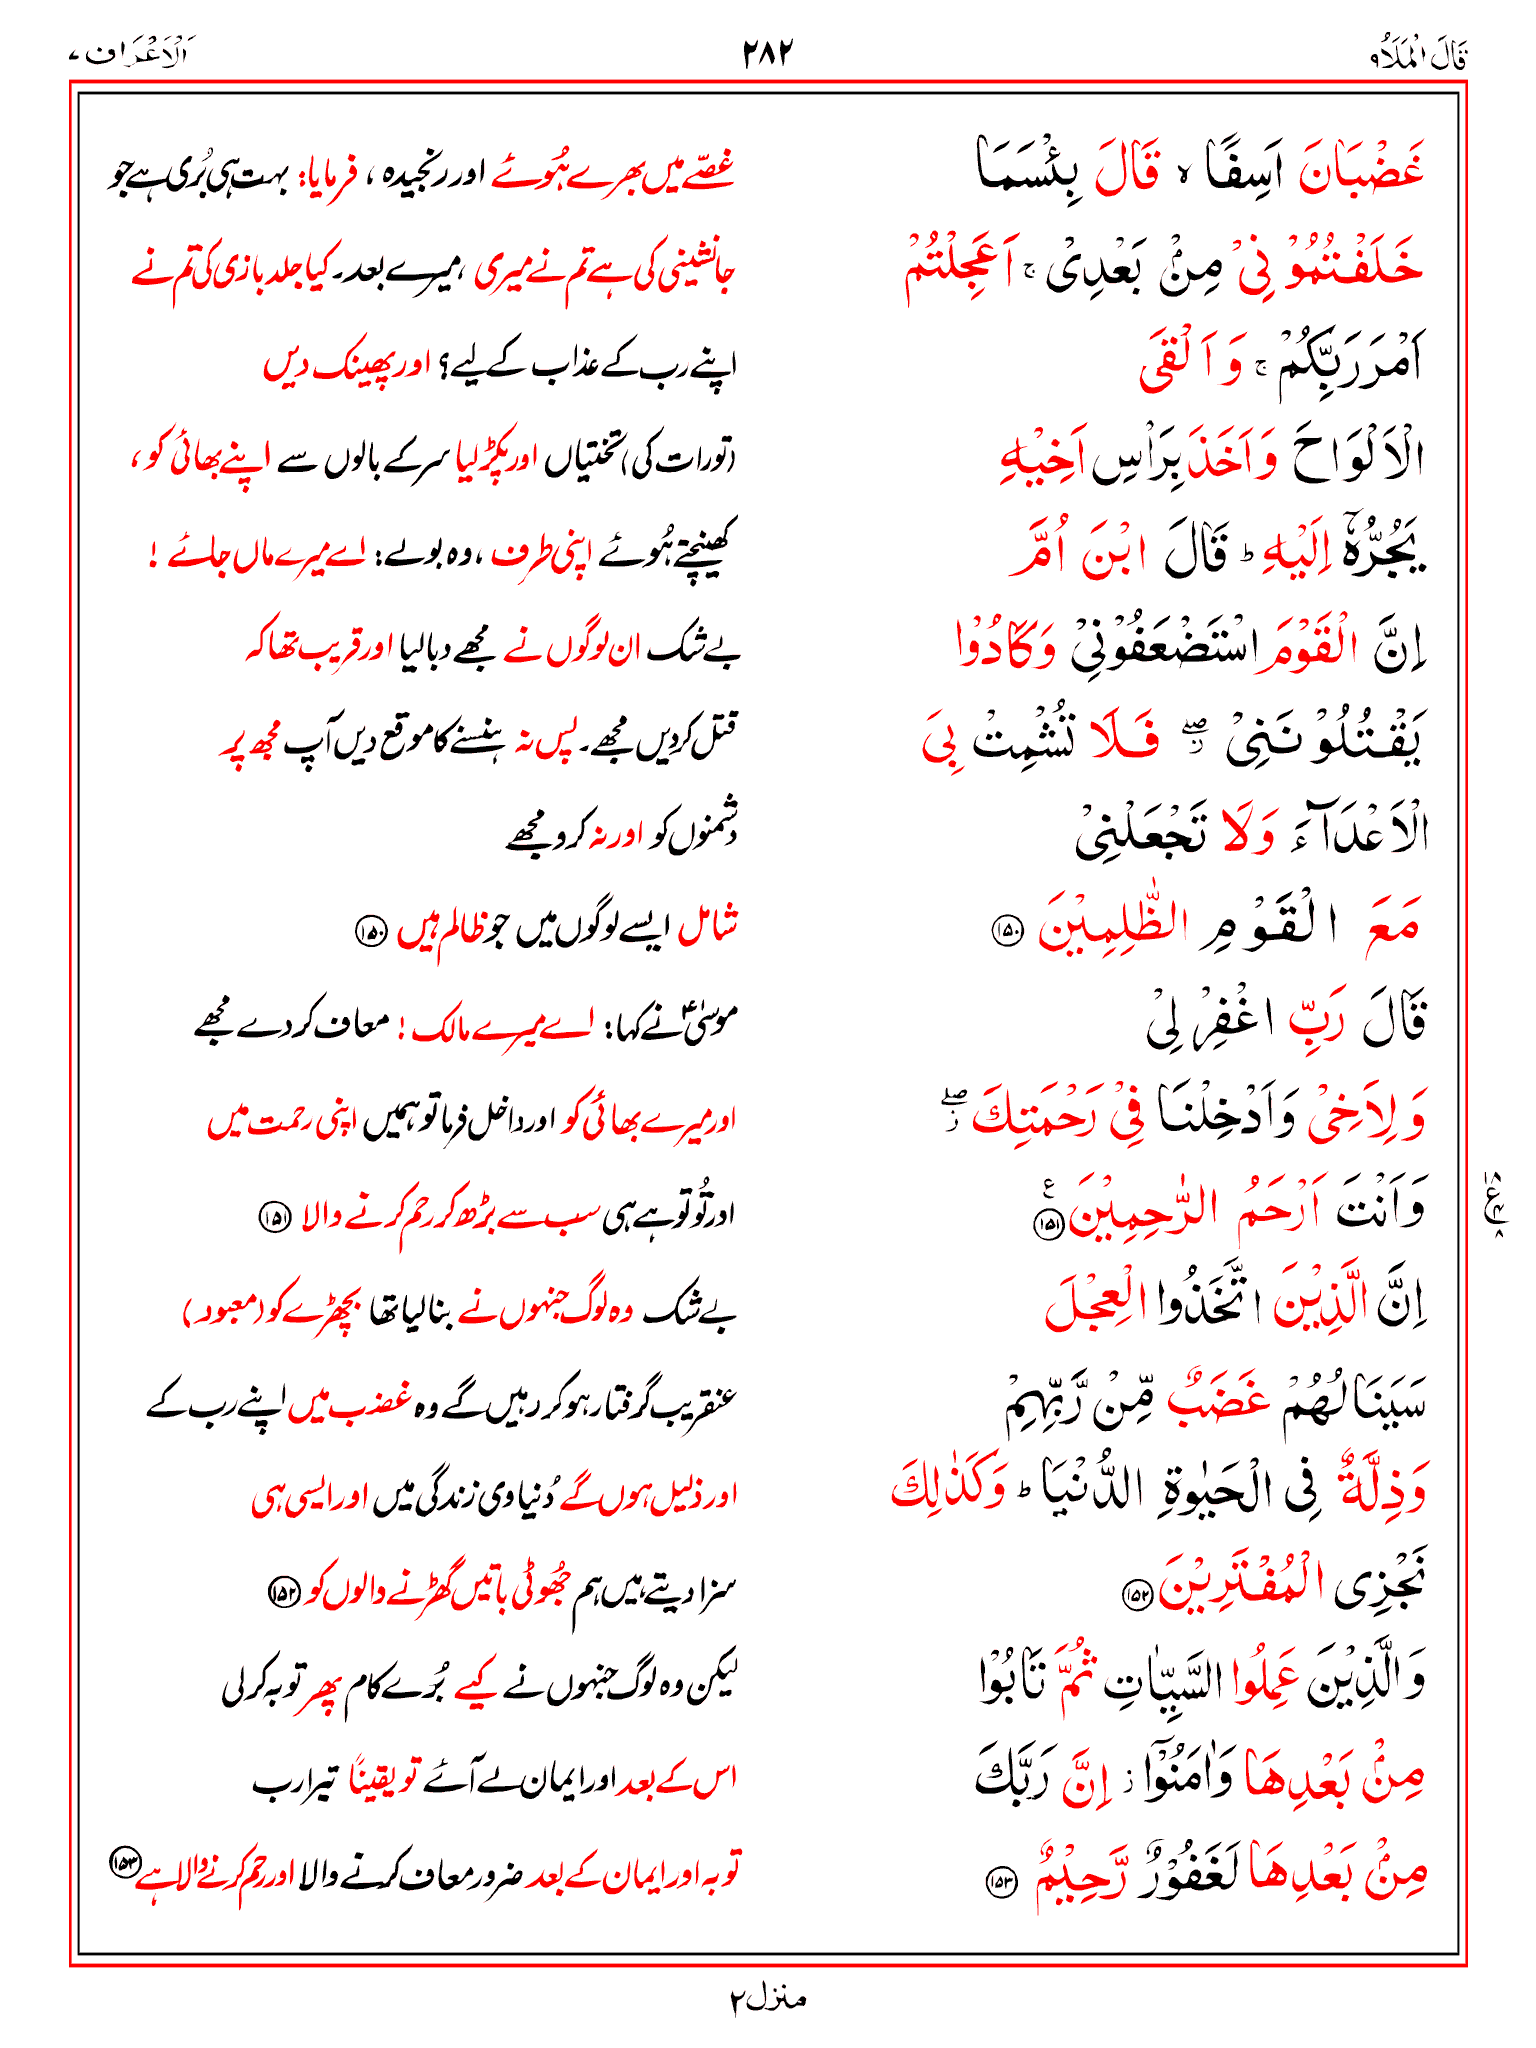 قَالَ الْمَلَاُ ۹
۲۸۲
اَلْاَعْرَاف ۷
غَضْبَانَ اَسِفًا ۙ قَالَ بِئْسَمَا
غصّے میں بھرے ہُوئے اور رنجیدہ ، فرمایا: بہت ہی بُری ہے جو
خَلَفْتُمُوْنِیْ مِنْۢ بَعْدِیْ ۚ اَعَجِلْتُمْ
جانشینی کی ہے تم نے میری ،میرے بعد۔ کیا جلد بازی کی تم نے
اَمْرَ رَبِّكُمْ ۚ وَ اَلْقَی
اپنے رب کے عذاب کے لیے؟ اور پھینک دیں
الْاَلْوَاحَ وَاَخَذَ بِرَاْسِ اَخِیْهِ
(تورات کی) تختیاں اور پکڑ لیا سر کے بالوں سے اپنے بھائی کو ،
یَجُرُّهٗۤ اِلَیْهِ ؕ قَالَ ابْنَ اُمَّ
کھینچتے ہُوئے اپنی طرف ، وہ بولے: اے میرے ماں جائے !
اِنَّ الْقَوْمَ اسْتَضْعَفُوْنِیْ وَكَادُوْا
بے شک ان لوگوں نے مجھے دبا لیا اور قریب تھا کہ
یَقْتُلُوْنَنِیْ ۖؗ فَلَا تُشْمِتْ بِیَ
قتل کر دیں مجھے۔ پس نہ ہنسنے کا موقع دیں آپ مجھ پر
الْاَعْدَآءَ وَلَا تَجْعَلْنِیْ
دشمنوں کو اور نہ کرو مجھے
مَعَ الْقَوْمِ الظّٰلِمِیْنَ ۝۱۵۰
شامل ایسے لوگوں میں جو ظالم ہیں ۝۱۵۰
قَالَ رَبِّ اغْفِرْ لِیْ
موسٰیؑ نے کہا: اے میرے مالک ! معاف کر دے مجھے
وَ لِاَخِیْ وَاَدْخِلْنَا فِیْ رَحْمَتِكَ ۖؗ
اور میرے بھائی کو اور داخل فرما تو ہمیں اپنی رحمت میں
وَاَنْتَ اَرْحَمُ الرّٰحِمِیْنَ ۝۱۵۱ ع
اور تُو تو ہے ہی سب سے بڑھ کر رحم کرنے والا ۝۱۵۱
اِنَّ الَّذِیْنَ اتَّخَذُوا الْعِجْلَ
بے شک وہ لوگ جنہوں نے بنا لیا تھا بچھڑے کو (معبود)
سَیَنَالُهُمْ غَضَبٌ مِّنْ رَّبِّهِمْ
عنقریب گرفتار ہو کر رہیں گے وہ غضب میں اپنے رب کے
وَذِلَّةٌ فِی الْحَیٰوةِ الدُّنْیَا ؕ وَكَذٰلِكَ
اور ذلیل ہوں گے دُنیاوی زندگی میں اور ایسی ہی
نَجْزِی الْمُفْتَرِیْنَ ۝۱۵۲
سزا دیتے ہیں ہم جھُوٹی باتیں گھڑنے والوں کو ۝۱۵۲
وَالَّذِیْنَ عَمِلُوا السَّیِّاٰتِ ثُمَّ تَابُوْا
لیکن وہ لوگ جنہوں نے کیے بُرے کام پھر توبہ کر لی
مِنْۢ بَعْدِهَا وَاٰمَنُوْۤا ؗ اِنَّ رَبَّكَ
اس کے بعد اور ایمان لے آئے تو یقیناً تیرا رب
مِنْۢ بَعْدِهَا لَغَفُوْرٌ رَّحِیْمٌ ۝۱۵۳
توبہ اور ایمان کے بعد ضرور معاف کرنے والا اور رحم کرنے والا ہے ۝۱۵۳
منزل ۲